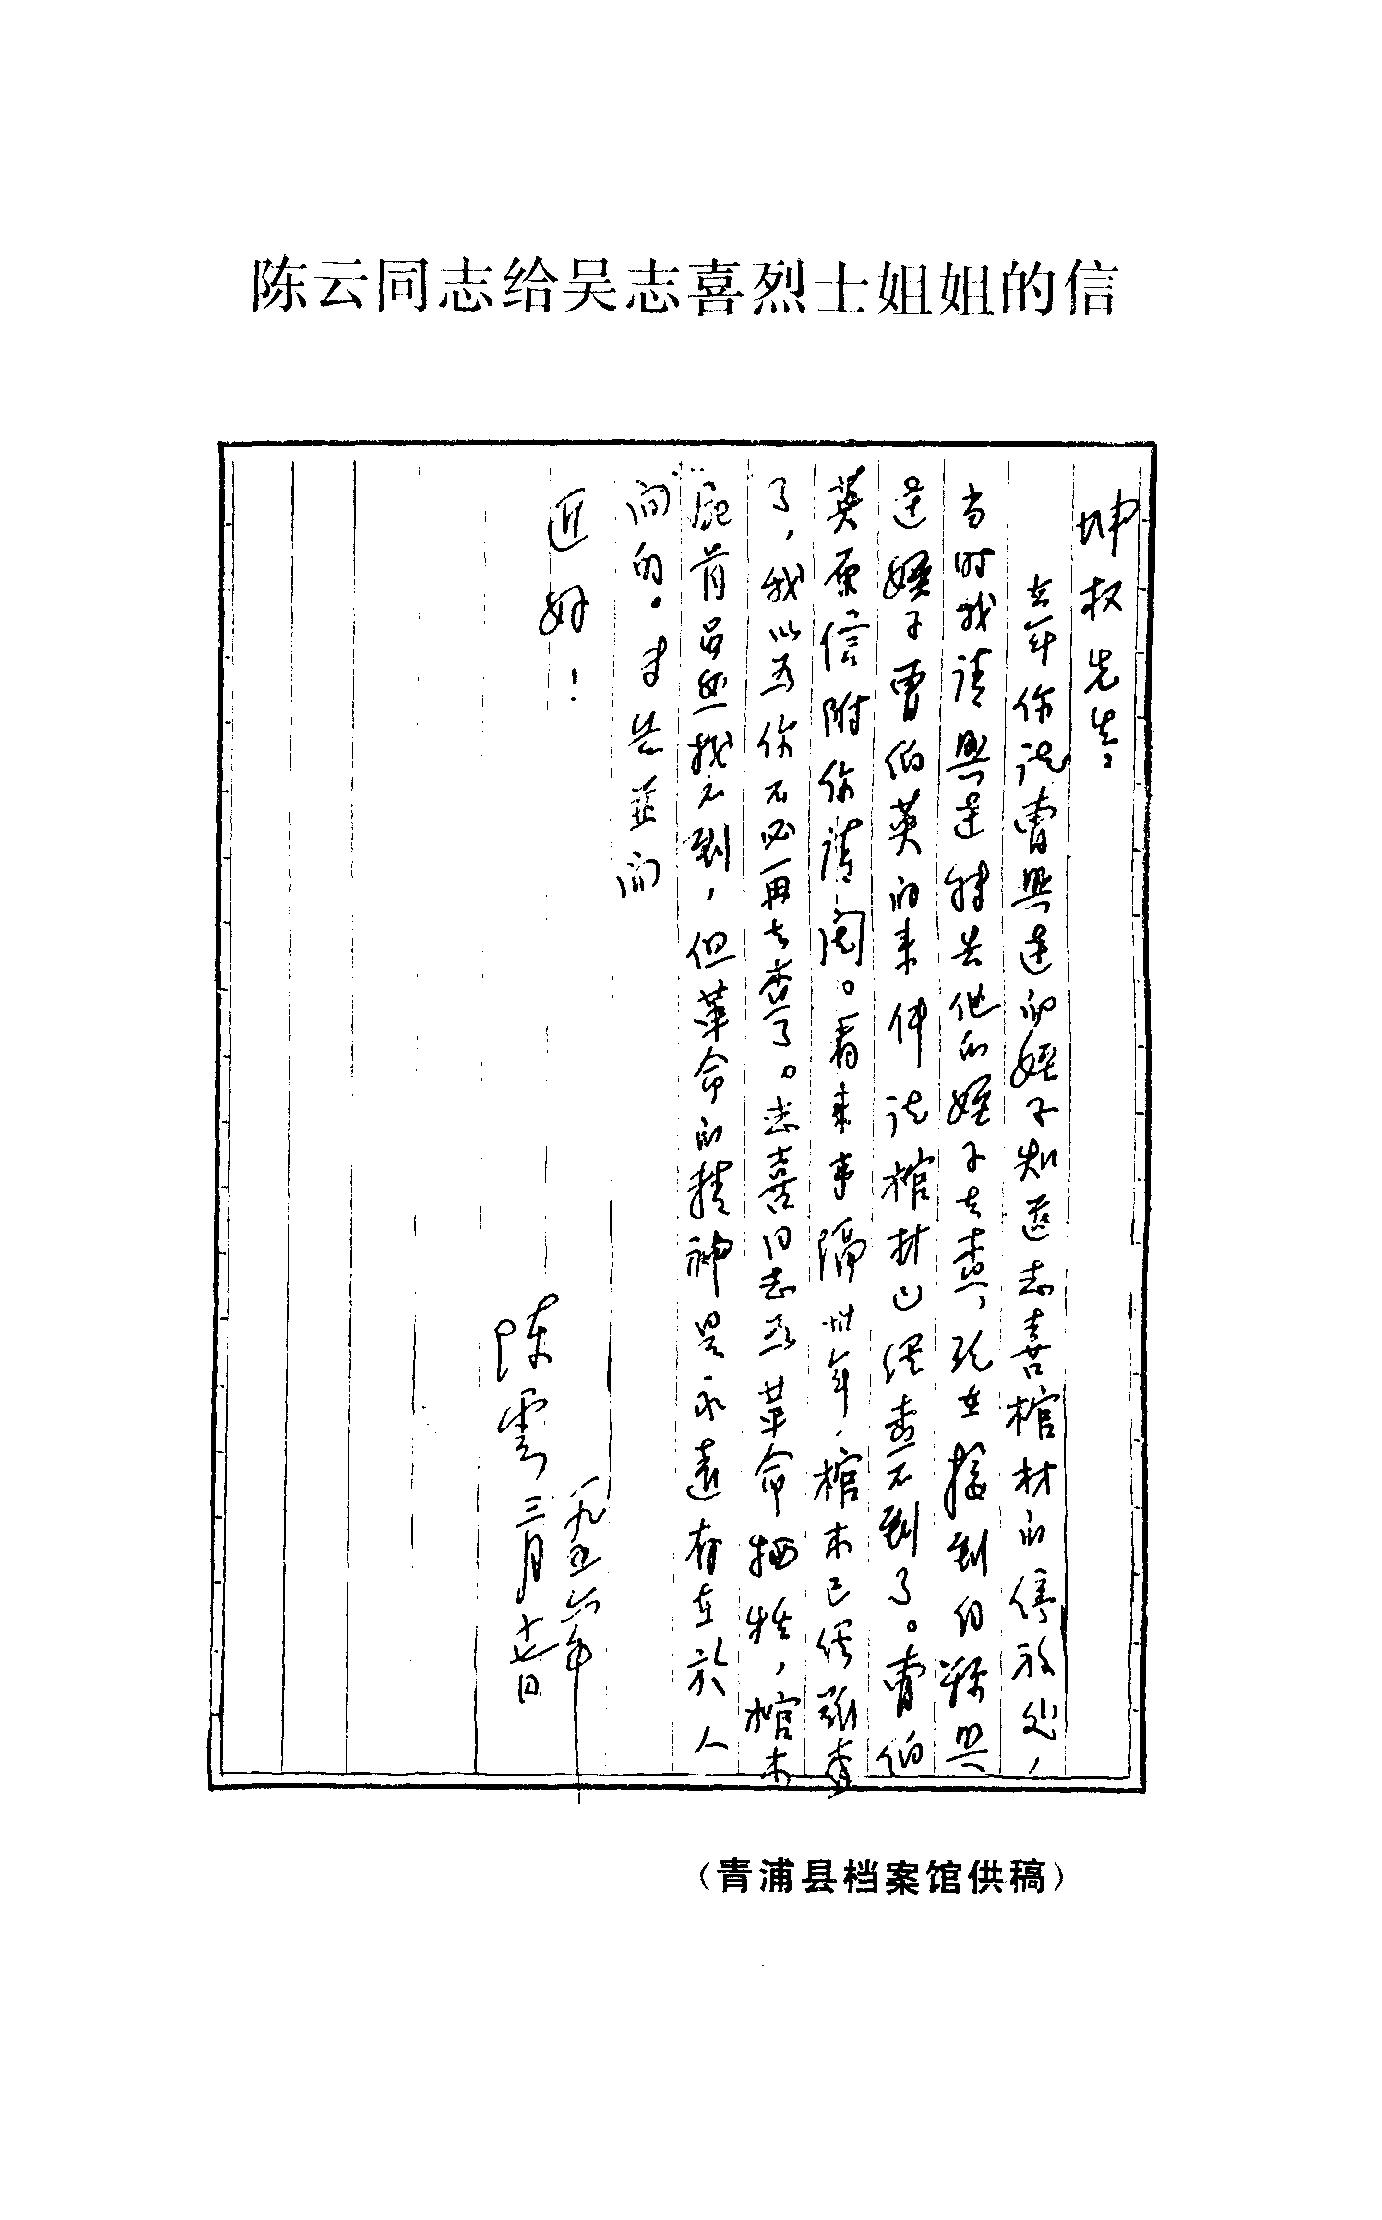 陈云同志给吴志喜烈士姐姐的信
坤权先生：
去年你说曹興达的嬸子知道志喜棺材的停放处，
当时我请興达转告他的嬸子去查，现在接到伯
达嬸子曹伯英的来件说棺材已经查不到了。曹伯
英原信附你请阅。看来事隔卅年，棺木已很难查
了，我以为你不必再去查了。志喜同志为革命牺牲，棺木
屍首虽然找不到，但革命的精神是永遠存在於人
间的。专告並问
近好！
陈雲
一九五六年
三月十七日
（青浦县档案馆供稿）